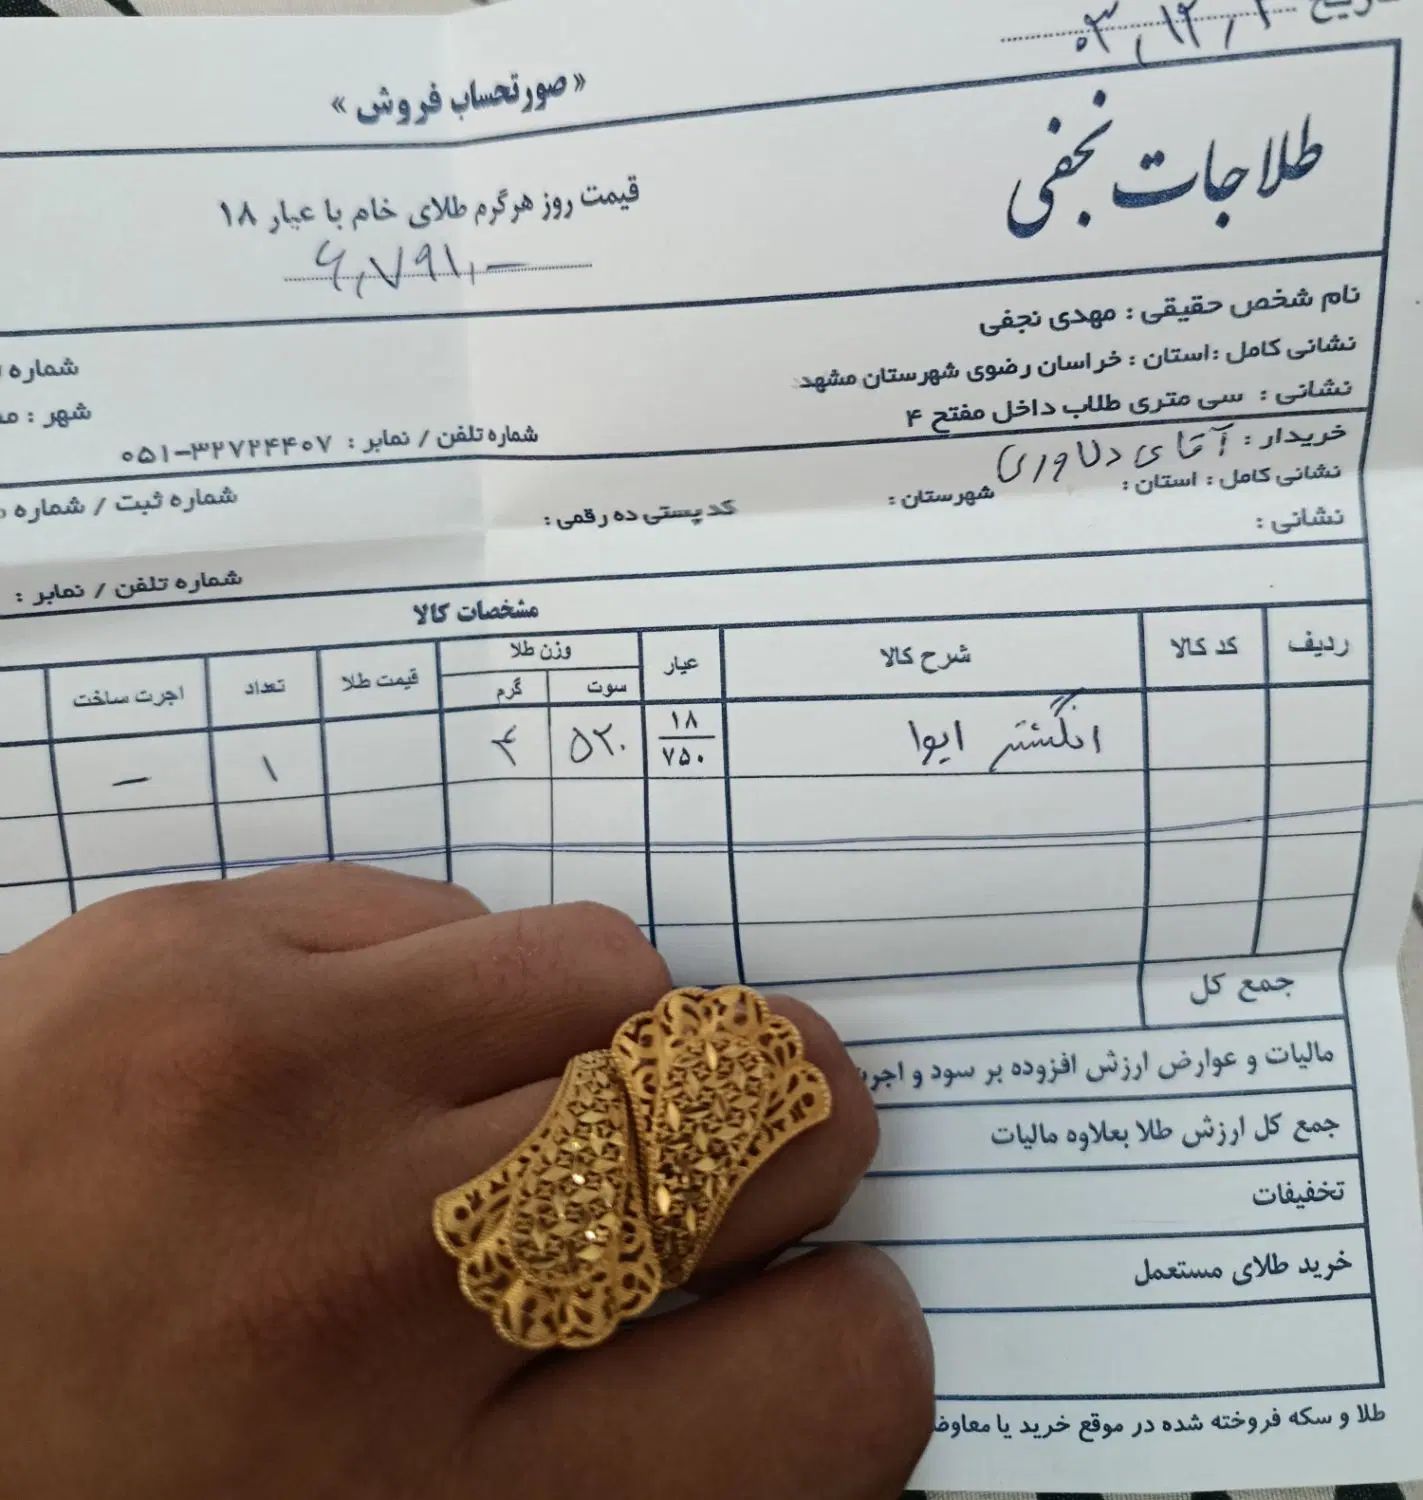 تاریخ ۰۳,۱۲,
« صورتحساب فروش »
طلاجات نجفی
قیمت روز هرگرم طلای خام با عیار ۱۸
۶,۷۹۱,۰-
نام شخص حقیقی : مهدی نجفی
نشانی کامل :استان : خراسان رضوی شهرستان مشهد
شماره
نشانی : سی متری طلاب داخل مفتح ۴
شماره تلفن / نمابر : ۰۵۱-۳۲۷۲۴۴۰۷
شهر :
خریدار : آقای دلاوری
نشانی کامل : استان : شهرستان : کد پستی ده رقمی : شماره ثبت / شماره
نشانی :
شماره تلفن / نمابر :
مشخصات کالا
ردیف کد کالا شرح کالا عیار وزن طلا سوت گرم قیمت طلا تعداد اجرت ساخت
انگشتر ایوا ۱۸ ۷۵۰ ۵۲۰ ۴ ۱ —
جمع کل
مالیات و عوارض ارزش افزوده بر سود و اجرت
جمع کل ارزش طلا بعلاوه مالیات
تخفیفات
خرید طلای مستعمل
طلا و سکه فروخته شده در موقع خرید یا معاوضه